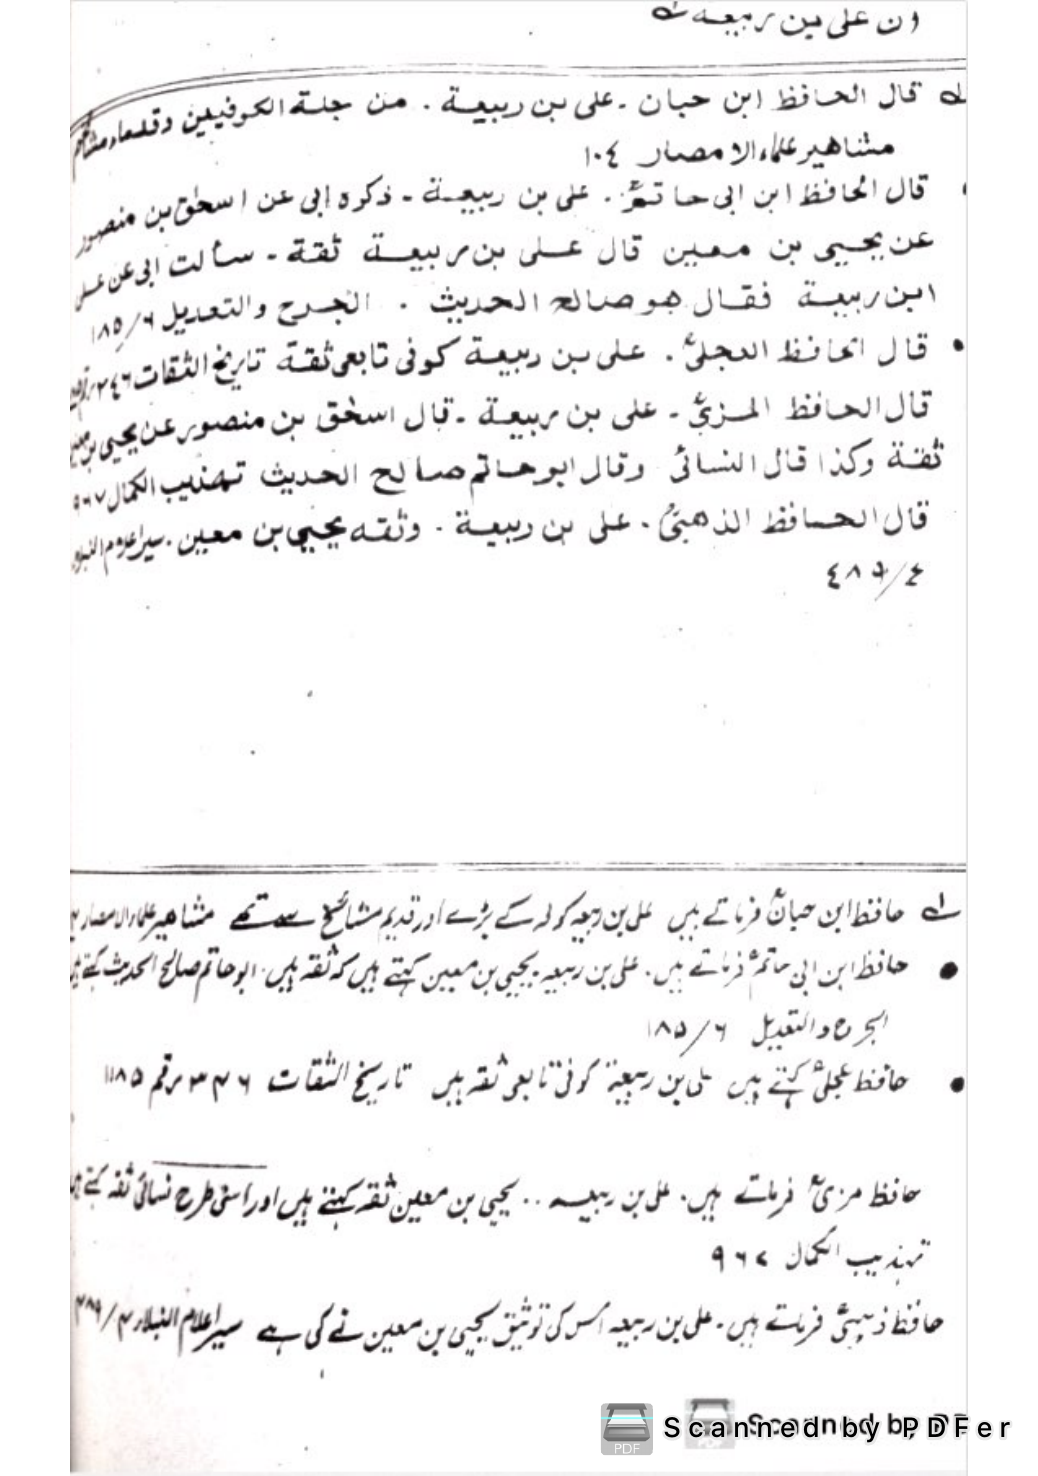 ان علی بن ربیعة لہ
لہ قال الحافظ ابن حبان ۔ علی بن ربیعة ۔ من جلة الکوفیین وقدماء مشائخهم
مشاهیر علماء الامصار ١٠٤
قال الحافظ ابن ابی حاتمؒ ۔ علی بن ربیعة ۔ ذکره ابی عن اسحٰق بن منصور
عن یحیی بن معین قال علی بن ربیعة ثقة ۔ سألت ابی عن علی
ابن ربیعة فقال هو صالح الحدیث ۔ الجرح والتعدیل ٦/١٨٥
• قال الحافظ العجلیؒ ۔ علی بن ربیعة کوفی تابعی ثقة تاریخ الثقات ٣٤٦
قال الحافظ المزیؒ ۔ علی بن ربیعة ۔ قال اسحٰق بن منصور عن یحیی بن معین
ثقة وکذا قال النسائی وقال ابوحاتم صالح الحدیث تهذیب الکمال ٩٦٧
قال الحافظ الذهبیؒ ۔ علی بن ربیعة ۔ وثقه یحیی بن معین ۔ سیر اعلام النبلاء
٤/٤٨٩
لہ حافظ ابن حبانؒ فرماتے ہیں علی بن ربیعہ کوفہ کے بڑے اور قدیم مشائخ سے تھے مشاهیر علماء الامصار
• حافظ ابن ابی حاتمؒ فرماتے ہیں ۔ علی بن ربیعہ یحییٰ بن معین کہتے ہیں کہ ثقہ ہیں ۔ ابو حاتم صالح الحدیث کہتے ہیں
الجرح والتعدیل ٦/١٨٥
• حافظ عجلیؒ کہتے ہیں علی بن ربیعة کوفی تابعی ثقہ ہیں تاریخ الثقات ٣٤٦ رقم ١١٨٥
حافظ مزیؒ فرماتے ہیں ۔ علی بن ربیعہ ۔۔ یحییٰ بن معین ثقہ کہتے ہیں اور اسی طرح نسائی ثقہ کہتے ہیں
تهذیب الکمال ٩٦٧
حافظ ذہبیؒ فرماتے ہیں ۔ علی بن ربیعہ اس کی توثیق یحییٰ بن معین نے کی ہے سیر اعلام النبلاء ٤/٤٨٩
Scanned by PDFer